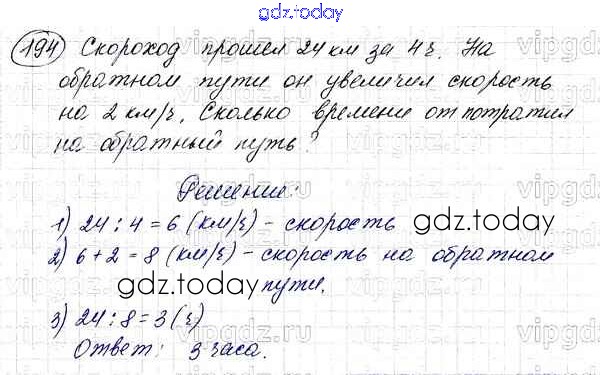 gdz.today
194 Скороход прошел 24 км за 4 ч. На
обратном пути он увеличил скорость
на 2 км/ч. Сколько времени от потратил
на обратный путь?
Решение:
1) 24 : 4 = 6 (км/ч) - скорость
gdz.today
2) 6 + 2 = 8 (км/ч) - скорость на обратном
пути.
gdz.today
3) 24 : 8 = 3 (ч)
Ответ: 3 часа.
gdz.today